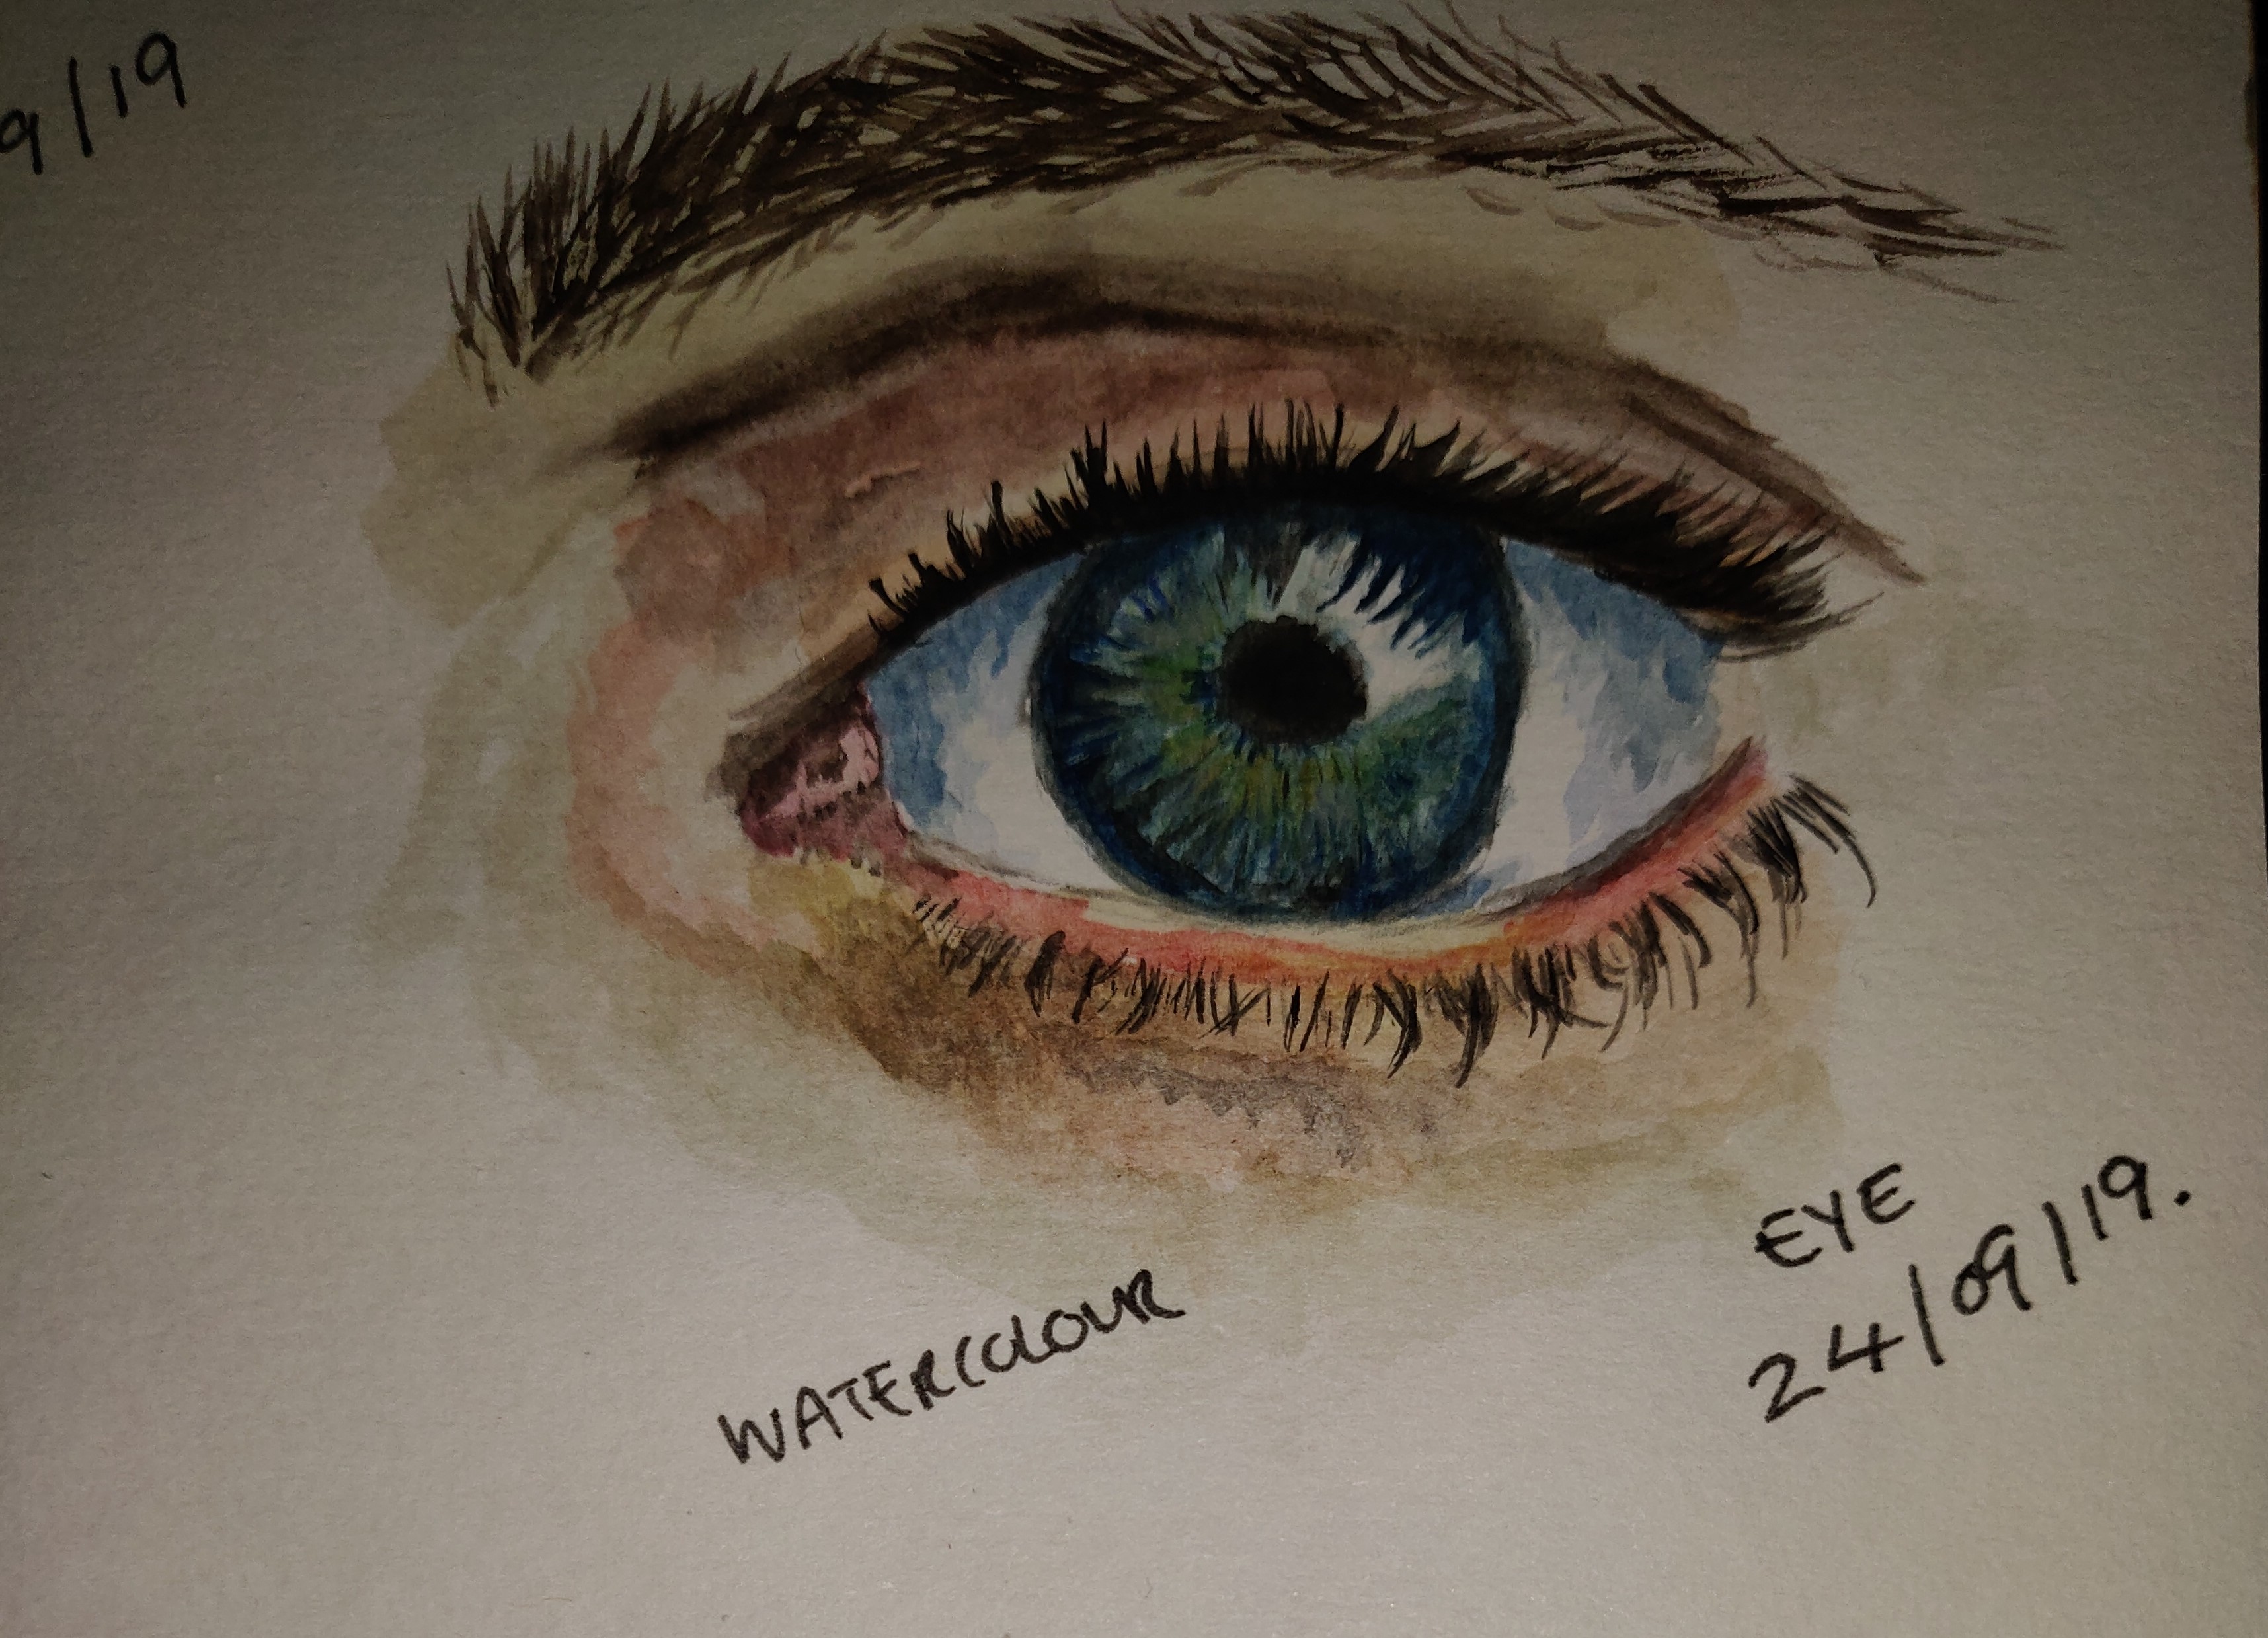 9/19
WATERCOLOUR
EYE
24/09/19.